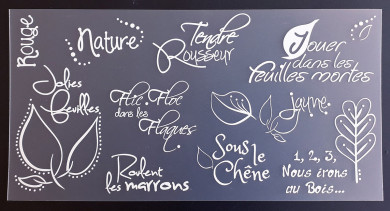 Rouge
Nature
Tendre
Rousseur
Jouer
dans les
feuilles mortes
Jolies
feuilles
Flic Floc
dans les
Flaques
jaune
Roulent
les marrons
Sous le
Chêne
1, 2, 3,
Nous irons
au Bois...